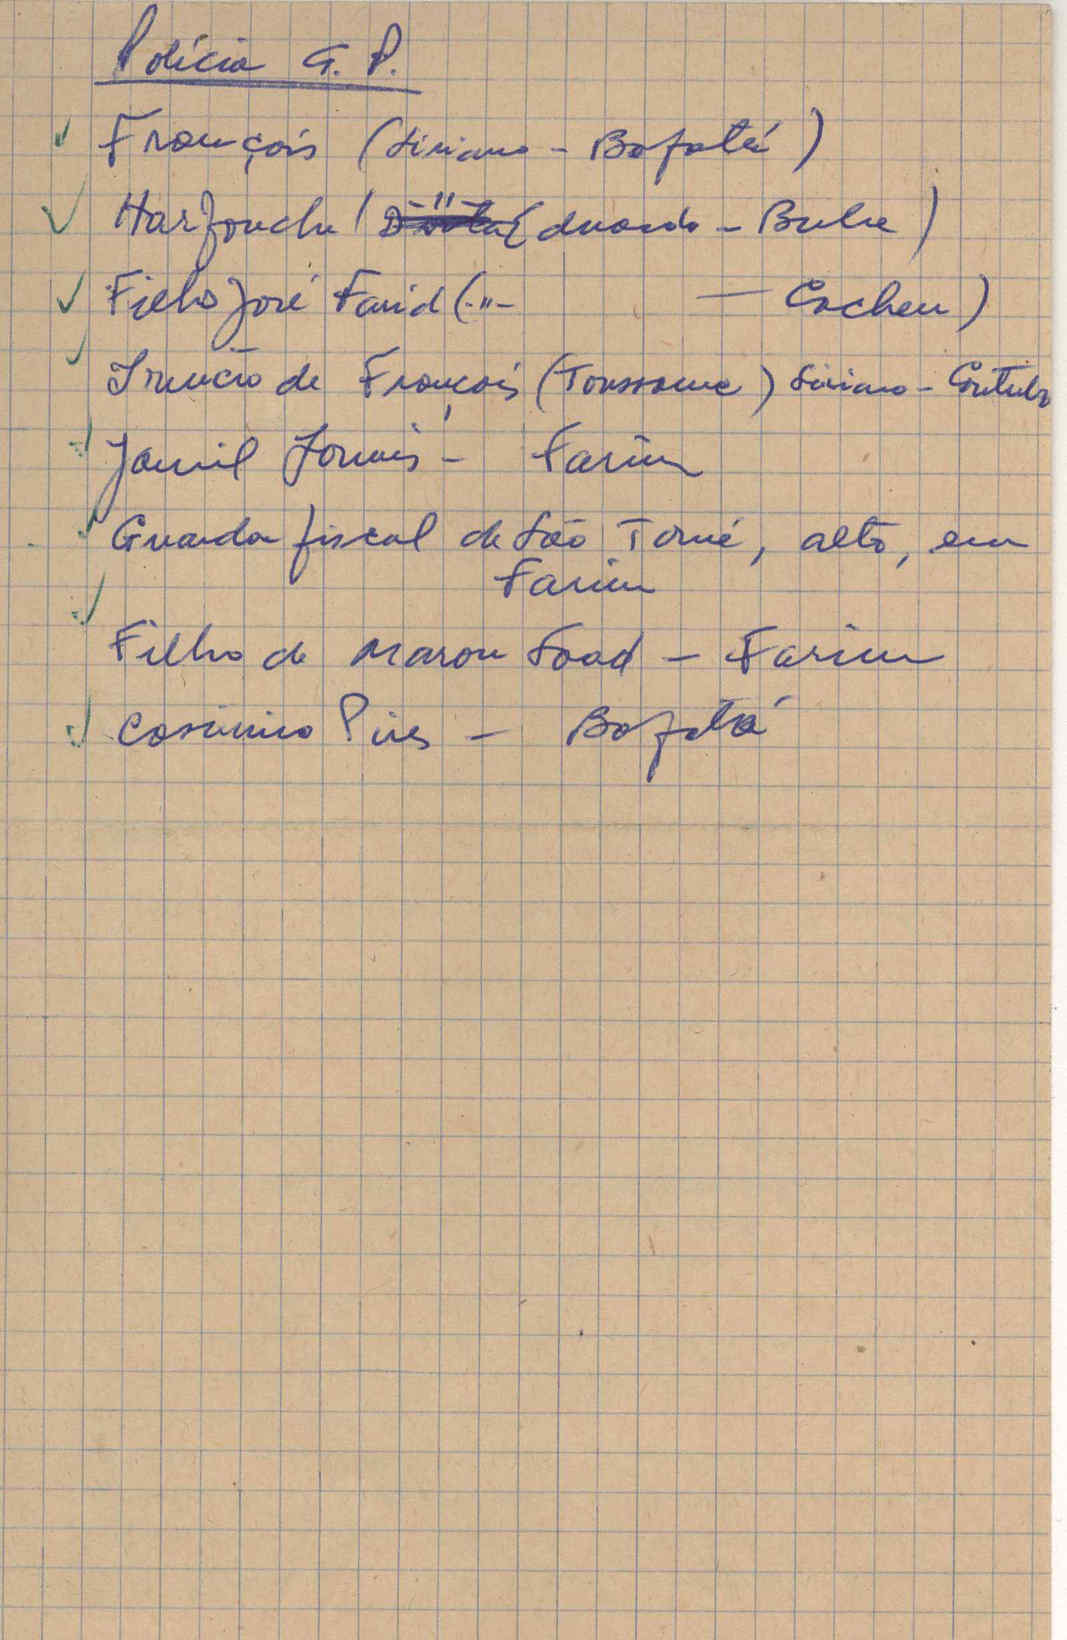 Polícia G. P.
François (Siriano - Bafatá)
Harfouche (-"- Eduardo - Bula)
Filho José Farid (-"- — Cacheu)
Irmão de François (Toussaine) Siriano - Contubo
Jamil - Farim
Guarda fiscal de São Tomé, alto, em
Farim
Filho de Maron Foad - Farim
Casimiro Pires - Bafatá